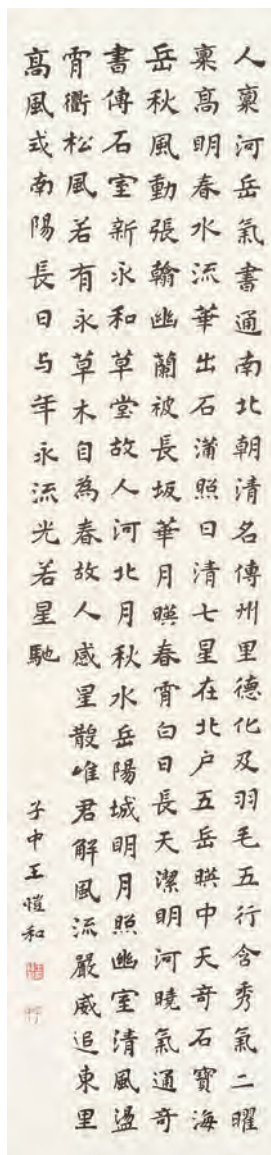 人稟河岳氣書通南北朝清名傳州里德化及羽毛五行含秀氣二曜
稟高明春水流華出石蒲照日清七星在北戶五岳暎中天奇石寶海
岳秋風動張翰幽蘭被長坂華月暎春霄白日長天潔明河曉氣通奇
書傳石室新永和草堂故人河北月秋水岳陽城明月照幽室清風盪
霄衢松風若有永草木自為春故人感星散唯君解風流嚴威追東里
高風式南陽長日与年永流光若星馳
子中王愷和